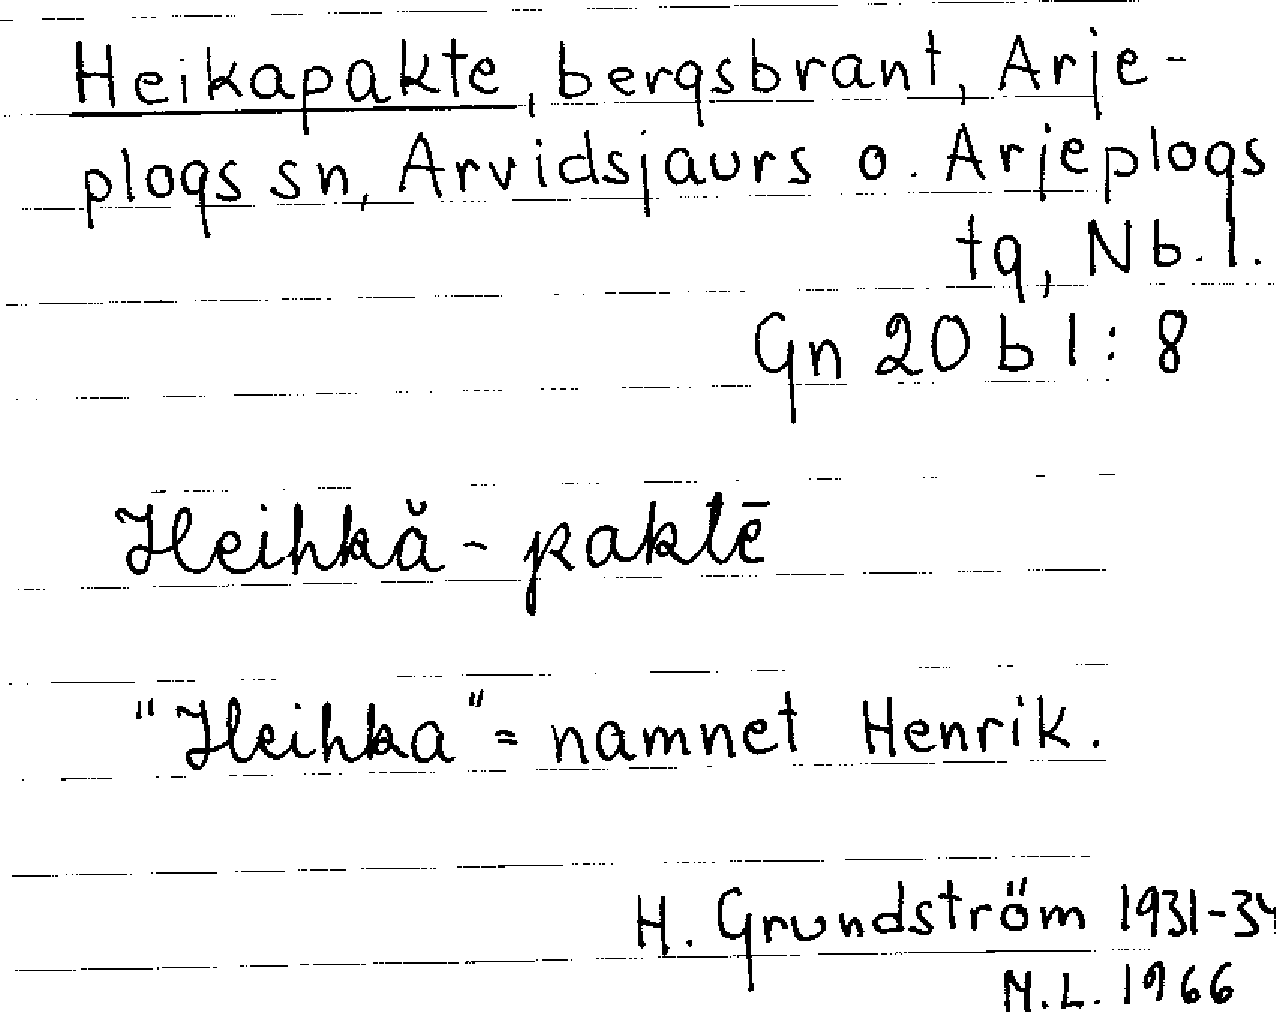 Heikapakte, bergsbrant, Arje-
plogs sn, Arvidsjaurs o. Arjeplogs
tg, Nb. l.
Gn 20 b 1 : 8
Heihkă - paktē
"Heihka" = namnet Henrik.
H. Grundström 1931-34
M.L. 1966